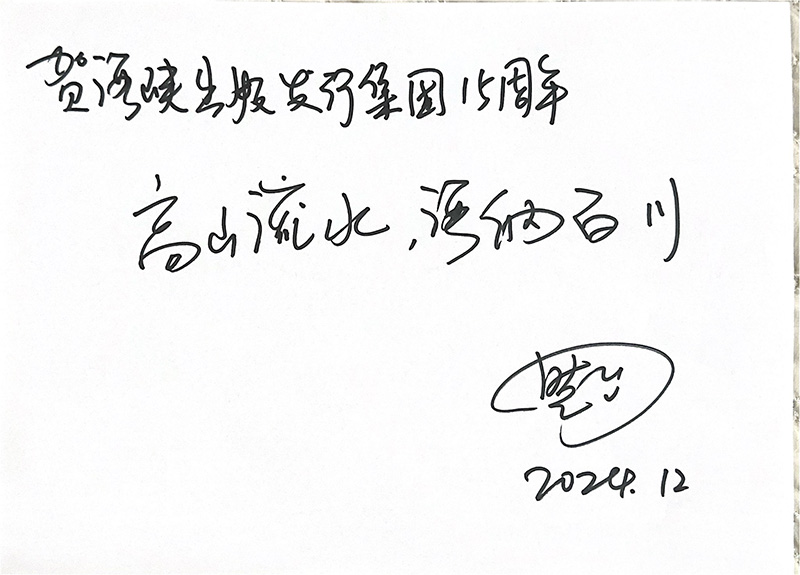 贺海峡出版发行集团15周年
高山流水,海纳百川
2024.12